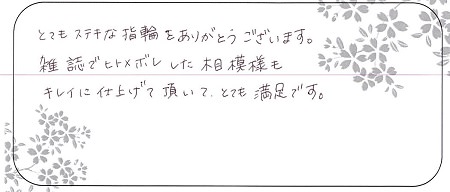 とてもステキな指輪をありがとうございます。
雑誌でヒトメボレした相模様も
キレイに仕上げて頂いて、とても満足です。